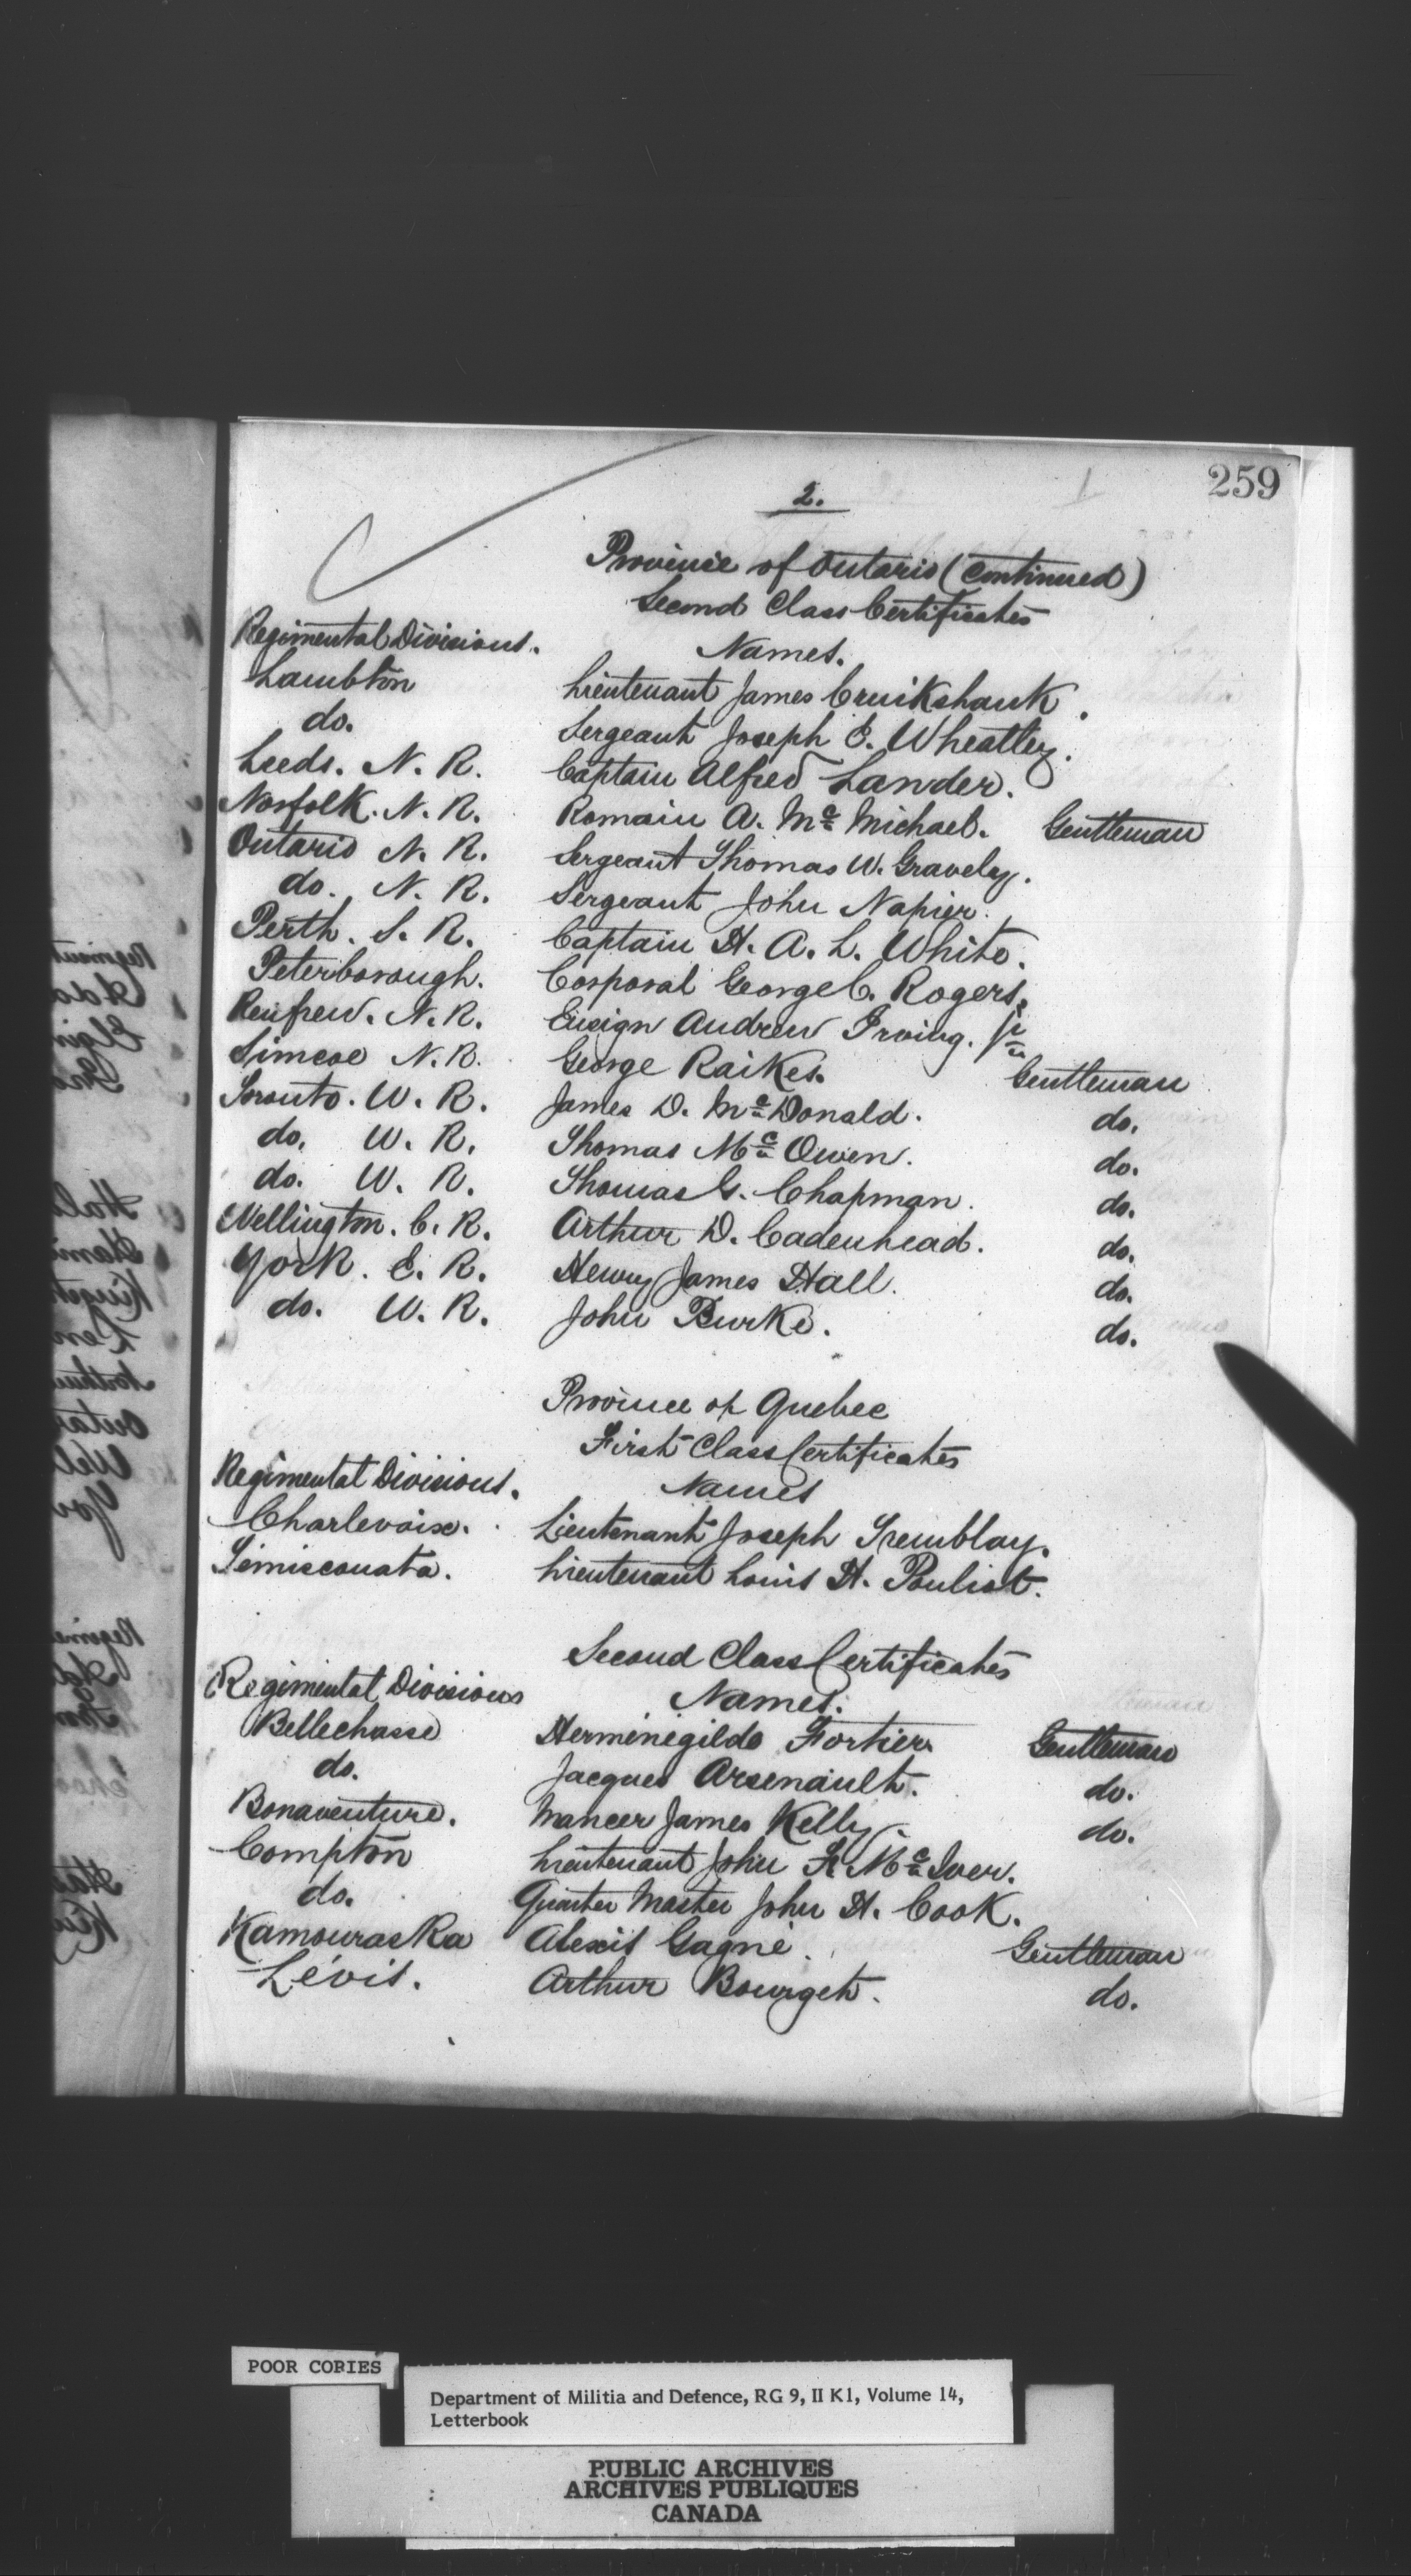 259
2.
Province of Ontario (Continued)
Second Class Certificates
Regimental Divisions. Names.
Lambton Lieutenant James Cruikshank.
do. Sergeant Joseph E. Wheatley.
Leeds. N. R. Captain Alfred Lander.
Norfolk. N. R. Romain A. Mc Michael. Gentleman
Ontario N. R. Sergeant Thomas W. Gravely.
do. N. R. Sergeant John Napier.
Perth. S. R. Captain H. A. L. White.
Peterborough. Corporal George C. Rogers.
Renfrew. N. R. Ensign Andrew Irving. Jr
Simcoe N. R. George Raikes. Gentleman
Toronto. W. R. James D. Mc Donald. do.
do. W. R. Thomas Mc Owen. do.
do. W. R. Thomas G. Chapman. do.
Wellington. C. R. Arthur D. Cadenhead. do.
York. E. R. Henry James Hall. do.
do. W. R. John Burke. do.
Province of Quebec
First Class Certificates
Regimental Divisions. Names
Charlevoix. Lieutenant Joseph Tremblay.
Témiscouata. Lieutenant Louis H. Pouliot.
Second Class Certificates
Regimental Divisions Names.
Bellechasse Herménégilde Fortier. Gentleman
do. Jacques Arsenault. do.
Bonaventure. Mancer James Kelly. do.
Compton Lieutenant John F. Mc Iver.
do. Quarter Master John H. Cook.
Kamouraska Alexis Gagné. Gentleman
Lévis. Arthur Bourget. do.
POOR COPIES
Department of Militia and Defence, RG 9, II K1, Volume 14,
Letterbook
PUBLIC ARCHIVES
ARCHIVES PUBLIQUES
CANADA